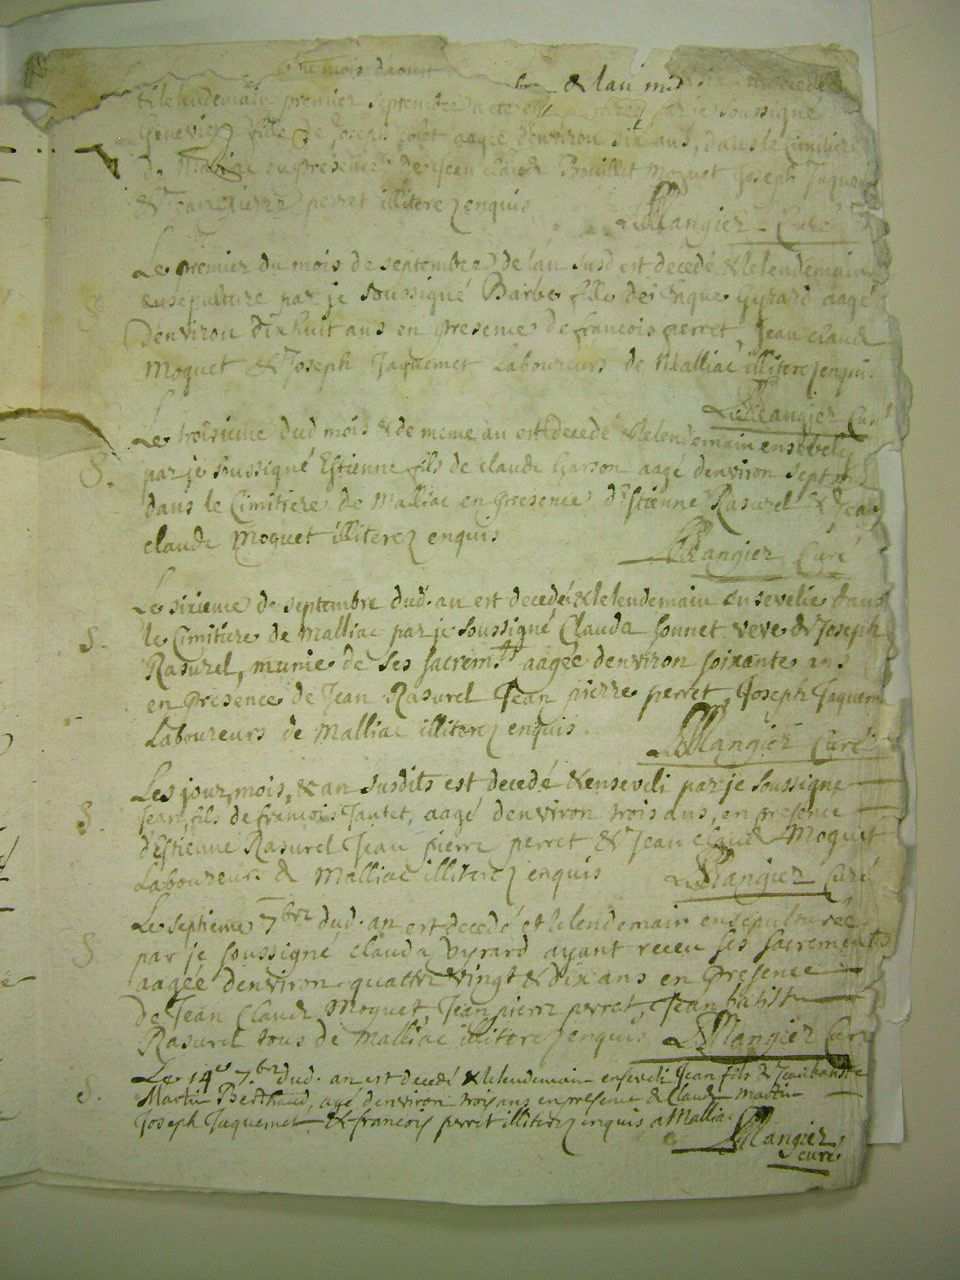 du mois daoust & lan mil
& le lendemain premier septembre a ete par je soussigné
Genevieve fille de Joseph aagée denviron dix ans, dans le Cimitiere
de en presence de Jean claude Moquet Joseph Jaquemet
& Jean pierre perret illiterez enquis
Mangier Curé
Le premier du mois de septembre de lan susd est decedé & le lendemain
ensepulture par je soussigné Barbe fille de Gyrard aagé
denviron dix huit ans en presence de francois perret, Jean claude
Moquet & Joseph Jaquemet Laboureurs de Malliac illiterez enquis.
Mangier Curé
Le troisieme dud mois & de meme an est decedé & le lendemain ensevely
§. par je soussigné Estienne fils de claude Garson aagé denviron sept ans
dans le Cimitiere de Malliac en presence d'Estienne Rasurel & Jean
claude Moquet illiterez enquis
Mangier Curé
Le sixieme de septembre dud. an est decedée & le lendemain ensevelie dans
§. le Cimitiere de Malliac par je soussigné Clauda Sonnet veve de Joseph
Rasurel, munie de ses sacremts aagée denviron soixante ans
en presence de Jean Rasurel Jean pierre perret, Joseph Jaquemet
Laboureurs de Malliac illiterez enquis.
Mangier Curé
Les jour, mois, & an susdits est decedé & enseveli par je soussigne
§. Jean, fils de francois Jantet, aagé denviron trois ans, en presence
d'Estienne Rasurel Jean pierre perret & Jean claude Moquet
Laboureurs de Malliac illiterez enquis
Mangier Curé
Le septieme 7bre dud. an est decedé et le lendemain ensepulturée
§ par je soussigné clauda Gyrard ayant receu ses sacrements
aagée denviron quattre vingt & dix ans en presence
de Jean Claude Moquet, Jean pierre perret, Jean batiste
Rasurel tous de Malliac illiterez enquis
Mangier Curé
Le 14e 7.bre dud. an est decedé & le lendemain enseveli Jean fils de Jean batiste
§. Martin Berthaud, agé denviron trois ans en presence de Claude Martin
Joseph Jaquemet & francois perret illiterez enquis a Malliac
Mangier
curé